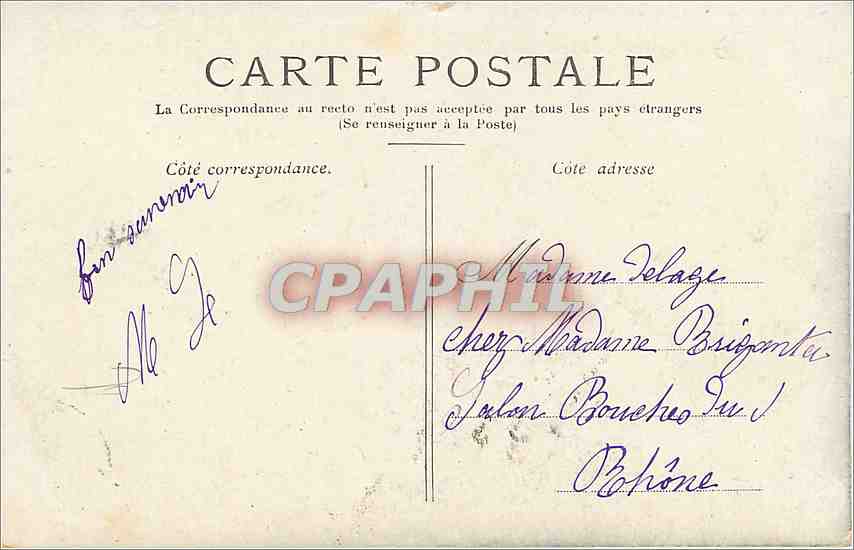 CARTE POSTALE
La Correspondance au recto n'est pas acceptée par tous les pays étrangers
(Se renseigner à la Poste)
Côté correspondance.
Côté adresse
Bon souvenir
M
CPAPHIL
Madame Delage
chez Madame Briganta
Salon Bouches du
Rhône